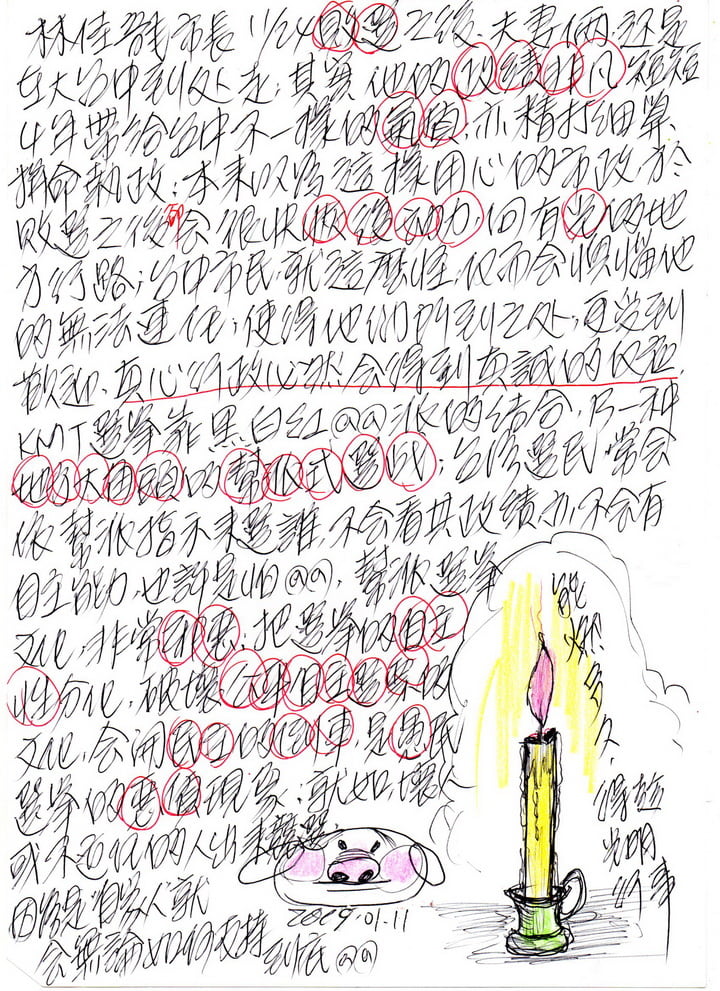 林佳龍市長 11/24敗選之後,夫妻倆,還是
在大台中到处走;其實他的政績非凡 短短
4年帶給台中不一樣的氣質,亦精打細算、
拼命執政;本來以為這樣用心的市政,於
敗選之後 會很快恢復和力,回有光的地
方行路;台中市民就這麼怪,反而会懷惱他
的無法連任;使得他們所到之处,更受到
歡迎、真心行政必然会得到真誠的反應,
KMT選舉靠黑白紅@@派的結合,乃一种
地方大相頭的幫派式選战;台灣選民常会
依幫派指示来選誰,不会看其政績亦不会有
自主能力,也許是怕@@,幫派選举
文化,非常邪惡;把選举的自主
性分化,破壞 自主選舉的
文化,会開民主的倒車,是愚民
選举的惡質現象,就如,壞人
或不適任的人出來競選,
因為是“自家人”就
会無論如何支持
到底@@
2019.01.11
能
燃
多
久
得趁
光明
行事